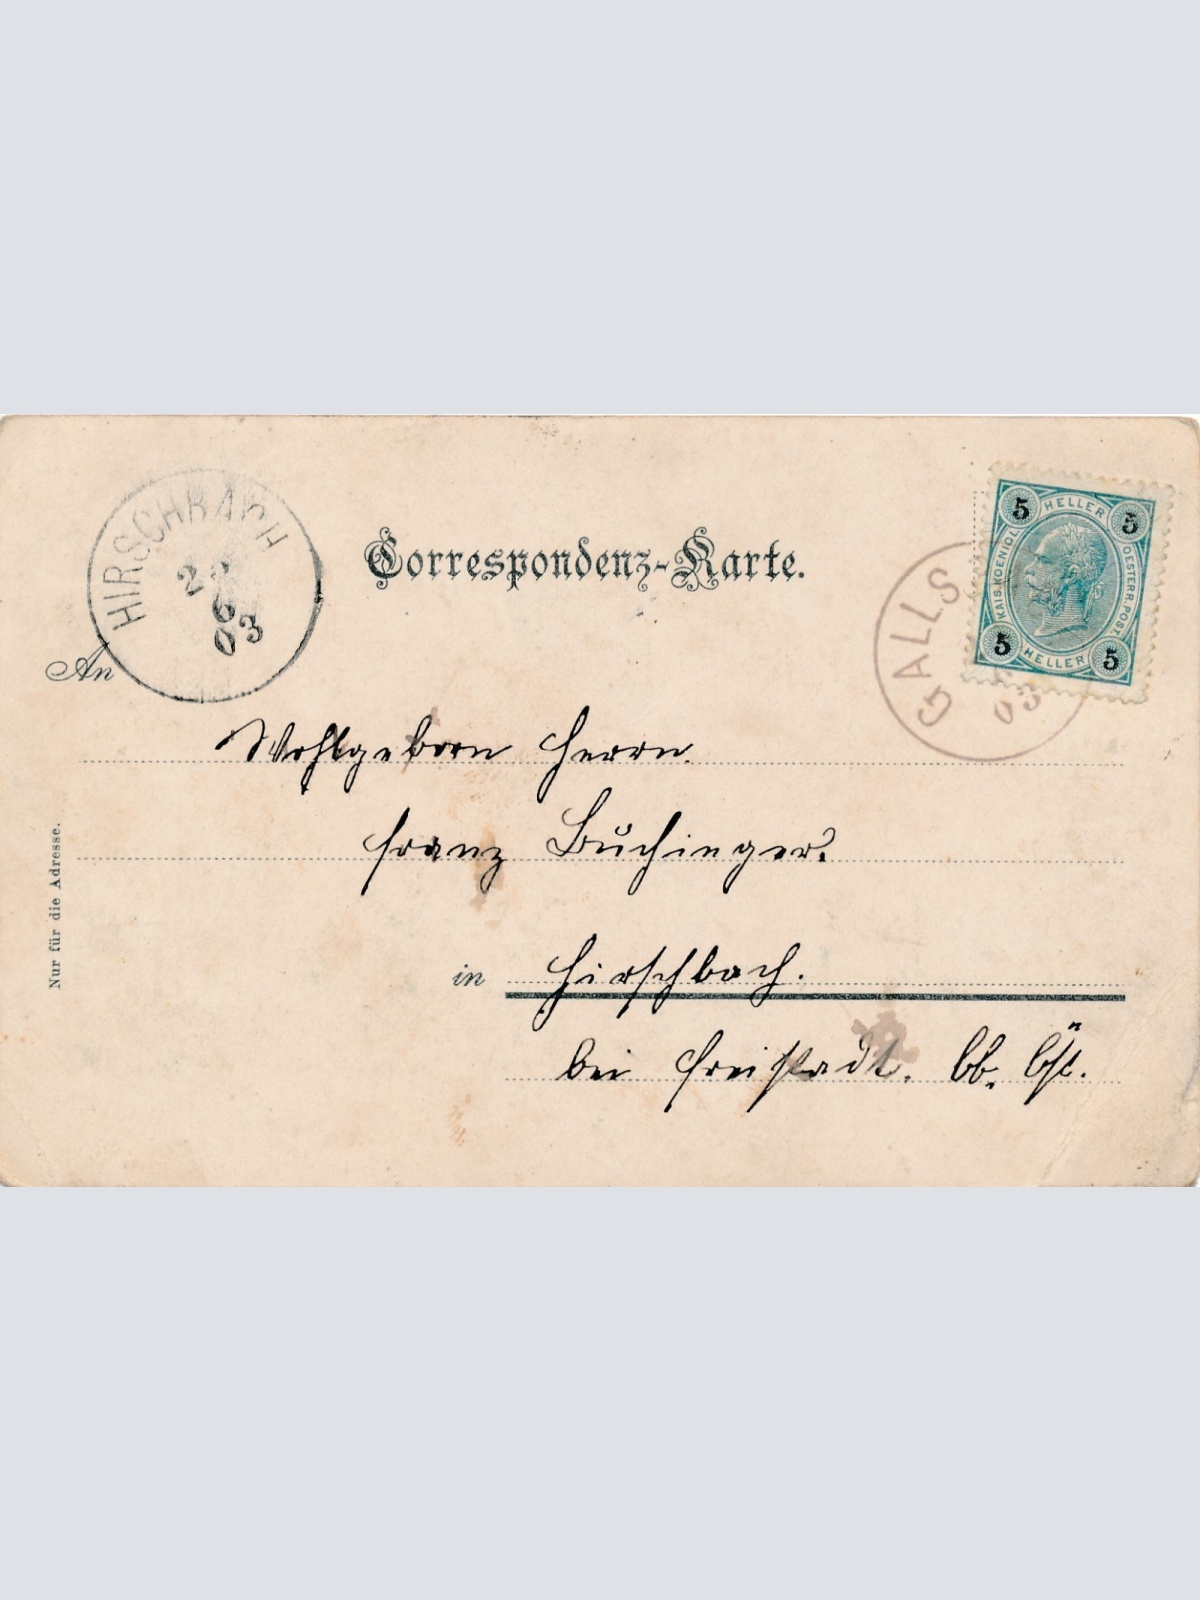 HIRSCHBACH
6
03
Correspondenz-Karte.
5 HELLER 5
KAIS. KOENIGL. OESTERR. POST.
5 HELLER 5
GALLS
03
An
Wohlgeborn Herrn.
Franz Buchinger.
in Hirschbach.
bei Freistadt.
Nur für die Adresse.